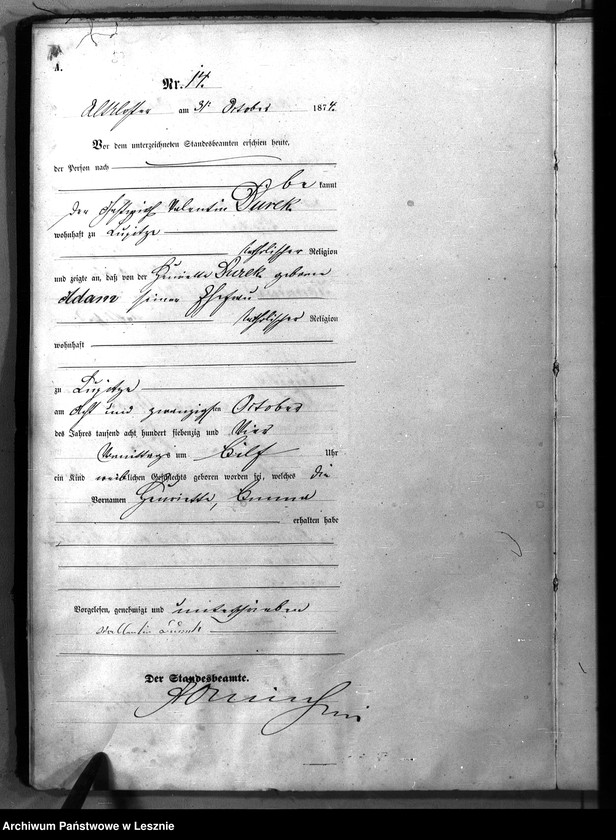 A.
Nr. 17.
Altkloster am 31 October 1874.
Vor dem unterzeichneten Standesbeamten erschien heute,
der Person nach
be kannt
der Valentin Durek
wohnhaft zu Lupitze
katholischer Religion
und zeigte an, daß von der Henriette Durek geborne
Adam seiner Ehefrau
katholischer Religion
wohnhaft
zu Lupitze
am Acht und zwanzigsten October
des Jahres tausend acht hundert siebenzig und Vier
Vormittags um Eilf Uhr
ein Kind weiblichen Geschlechts geboren worden sei, welches die
Vornamen Henriette, Emma
erhalten habe
Vorgelesen, genehmigt und unterschrieben
Der Standesbeamte.
Archiwum Państwowe w Lesznie